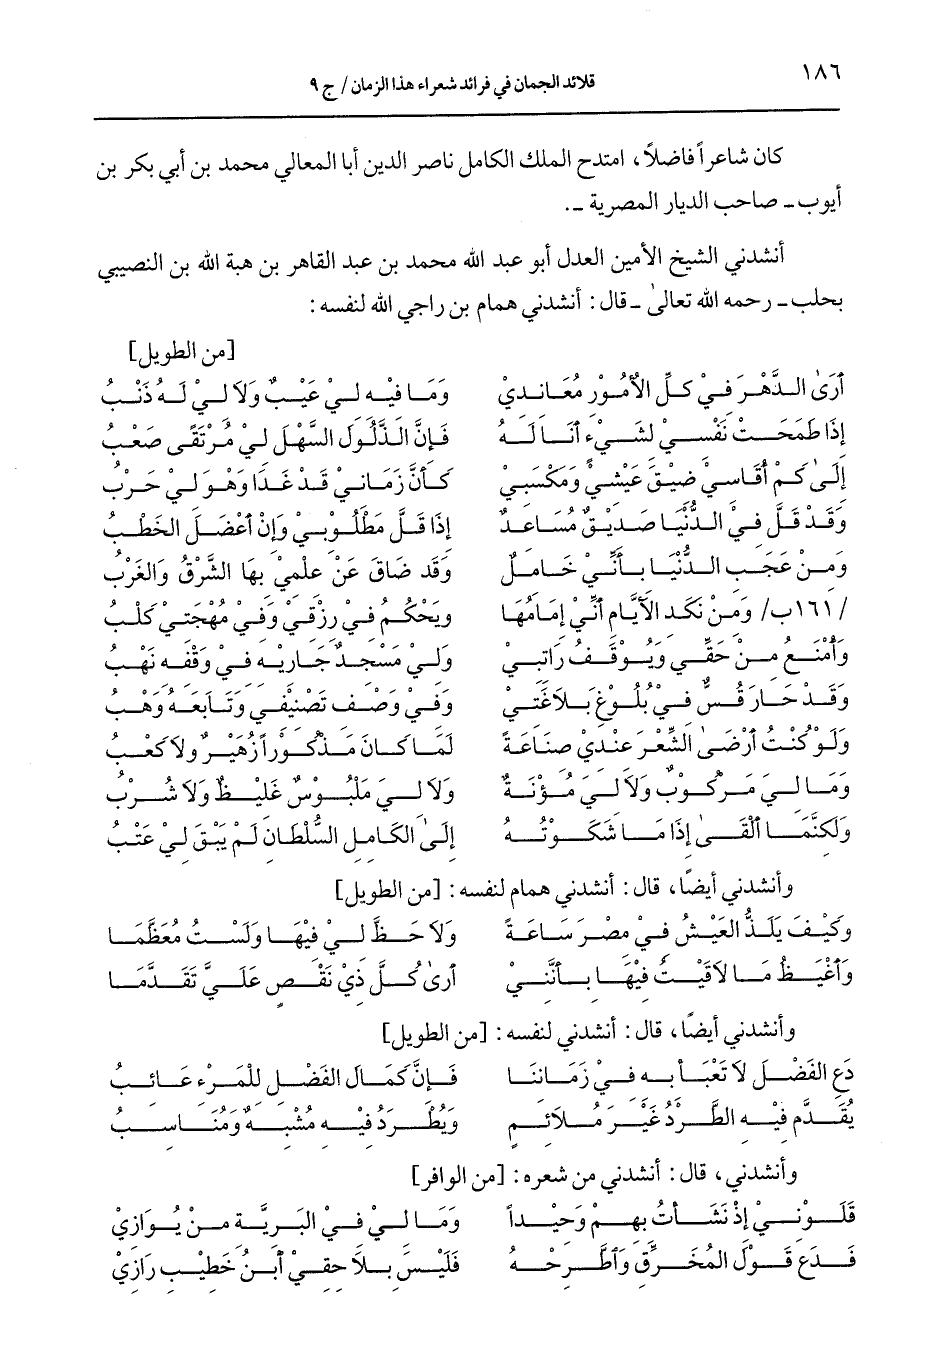 ١٨٦
قلائد الجمان في فرائد شعراء هذا الزمان/ ج ٩
كان شاعراً فاضلاً، امتدح الملك الكامل ناصر الدين أبا المعالي محمد بن أبي بكر بن
أيوب ـ صاحب الديار المصرية ـ.
أنشدني الشيخ الأمين العدل أبو عبد الله محمد بن عبد القاهر بن هبة الله بن النصيبي
بحلب ـ رحمه الله تعالىٰ ـ قال: أنشدني همام بن راجي الله لنفسه:
[من الطويل]
أرَىٰ الدَّهْرَ فيْ كلِّ الأمُورِ مُعَانديْ وَمَا فيْهِ ليْ عَيْبٌ وَلاَ ليْ لَهُ ذَنْبُ
إذَا طَمَحَتْ نَفْسيْ لشيْءٍ أنَا لَهُ فَإنَّ الذَّلُولَ السَّهْلَ ليْ مُرْتَقَى صَعْبُ
إلىٰ كَمْ أقَاسيْ ضيْقَ عَيْشيْ وَمَكْسَبيْ كَأنَّ زَمَانيْ قَدْ غَدَا وَهْوَ ليْ حَرْبُ
وَقَدْ قَلَّ فيْ الدُّنْيَا صَديْقٌ مُسَاعدٌ إذَا قَلَّ مَطْلُوبيْ وَإنْ أعْضَلَ الخَطْبُ
وَمِنْ عَجَبِ الدُّنْيَا بأنِّيْ خَاملٌ وَقَد ضَاقَ عَنْ علْميْ بهَا الشَّرْقُ وَالغَرْبُ
/ ١٦١ب/ وَمنْ نَكَد الأيَّام أنِّيْ إمَامُهَا وَيَحْكُمُ فيْ رزْقيْ وَفيْ مُهْجَتيْ كَلْبُ
وَأمْنَعُ منْ حَقِّيْ وَيُوقَفُ رَاتبيْ وَليْ مَسْجدٌ جَاريْه فيْ وَقْفه نَهْبُ
وَقَدْ حَارَ قُسٌّ فيْ بُلُوغِ بَلاَغَتيْ وَفيْ وَصْف تَصْنيْفيْ وَتَابَعَهُ وَهْبُ
وَلَوْ كُنْتُ أرْضَىٰ الشِّعْرَ عنْديْ صنَاعَةً لَمَا كَانَ مَذْكُوراً زُهَيْرٌ وَلاَ كَعْبُ
وَمَا ليَ مَرْكُوبٌ وَلاَ ليَ مُؤْنَةٌ وَلاَ ليَ مَلْبُوسٌ غَليْظٌ وَلاَ شُرْبُ
وَلَكنَّمَا ألْقَىٰ إذَا مَا شَكَوْتُهُ إلَىٰ الكَاملِ السُّلْطَان لَمْ يَبْقَ ليْ عَتْبُ
وأنشدني أيضاً، قال: أنشدني همام لنفسه: [من الطويل]
وَكَيْفَ يَلَذُّ العَيْشُ فيْ مصْرَ سَاعَةً وَلاَ حَظَّ ليْ فيْهَا وَلَسْتُ مُعَظَّمَا
وَأغْيَظُ مَا لاَقَيْتُ فيْهَا بأنَّنيْ أرَىٰ كُلَّ ذيْ نَقْصٍ عَلَيَّ تَقَدَّمَا
وأنشدني أيضاً، قال: أنشدني لنفسه: [من الطويل]
دَعِ الفَضْلَ لاَ تَعْبَأ به فيْ زَمَاننَا فَإنَّ كَمَالَ الفَضْلِ للْمَرْء عَائبُ
يُقَدَّم فيْه الطَّرْدُ غَيْرَ مُلاَئمٍ وَيُطْرَدُ فيْه مُشْبهٌ وَمُنَاسبُ
وأنشدني، قال: أنشدني من شعره: [من الوافر]
قَلَوْنيْ إذْ نَشَأتُ بهمْ وَحيْداً وَمَا ليْ فيْ البَريَّة مَنْ يُوَازيْ
فَدَع قَوْلَ المُخَرِّقِ وَأطَّرِحْهُ فَلَيْسَ بلاَحقيْ أبنُ خَطيْبِ رَازيْ